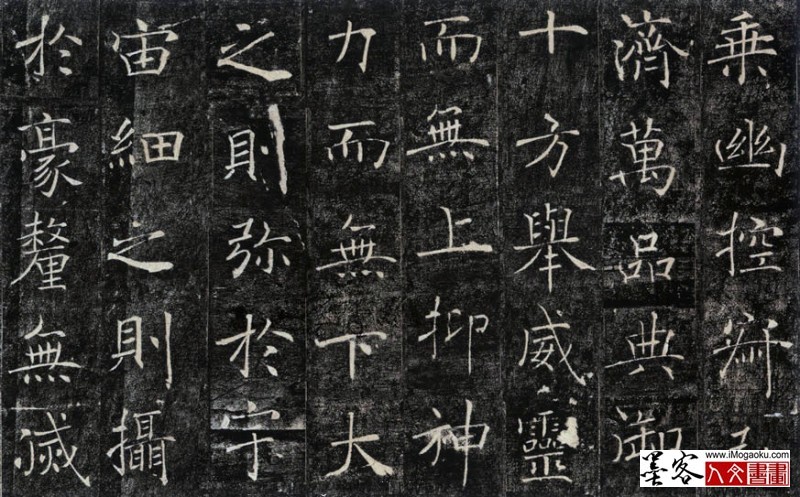 乘幽控寂
濟萬品典御
十方舉威靈
而無上抑神
力而無下大
之則弥於宇
宙細之則攝
於豪釐無滅
墨客
www.iMogaoku.com
人文書畫